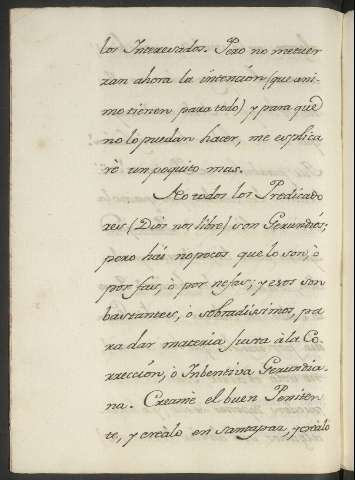 los Interesados. Pero no metuer
zan ahora la intención (que ani-
mo tienen para todo) y para que
no lo puedan hacer, me esplica
rè un poquito mas.
No todos los Predicado
res (Dios nos libre) son Gerundios;
pero hái no pocos que lo son, ò
por fas, ò por nefas; y esos son
bastantes, ò sobradissimos, pa
ra dar materia justa à la Co-
rrección, ò Inbentiva Gerundia-
na. Creame el buen Peniten
te, y crèalo en santa paz, y crèalo